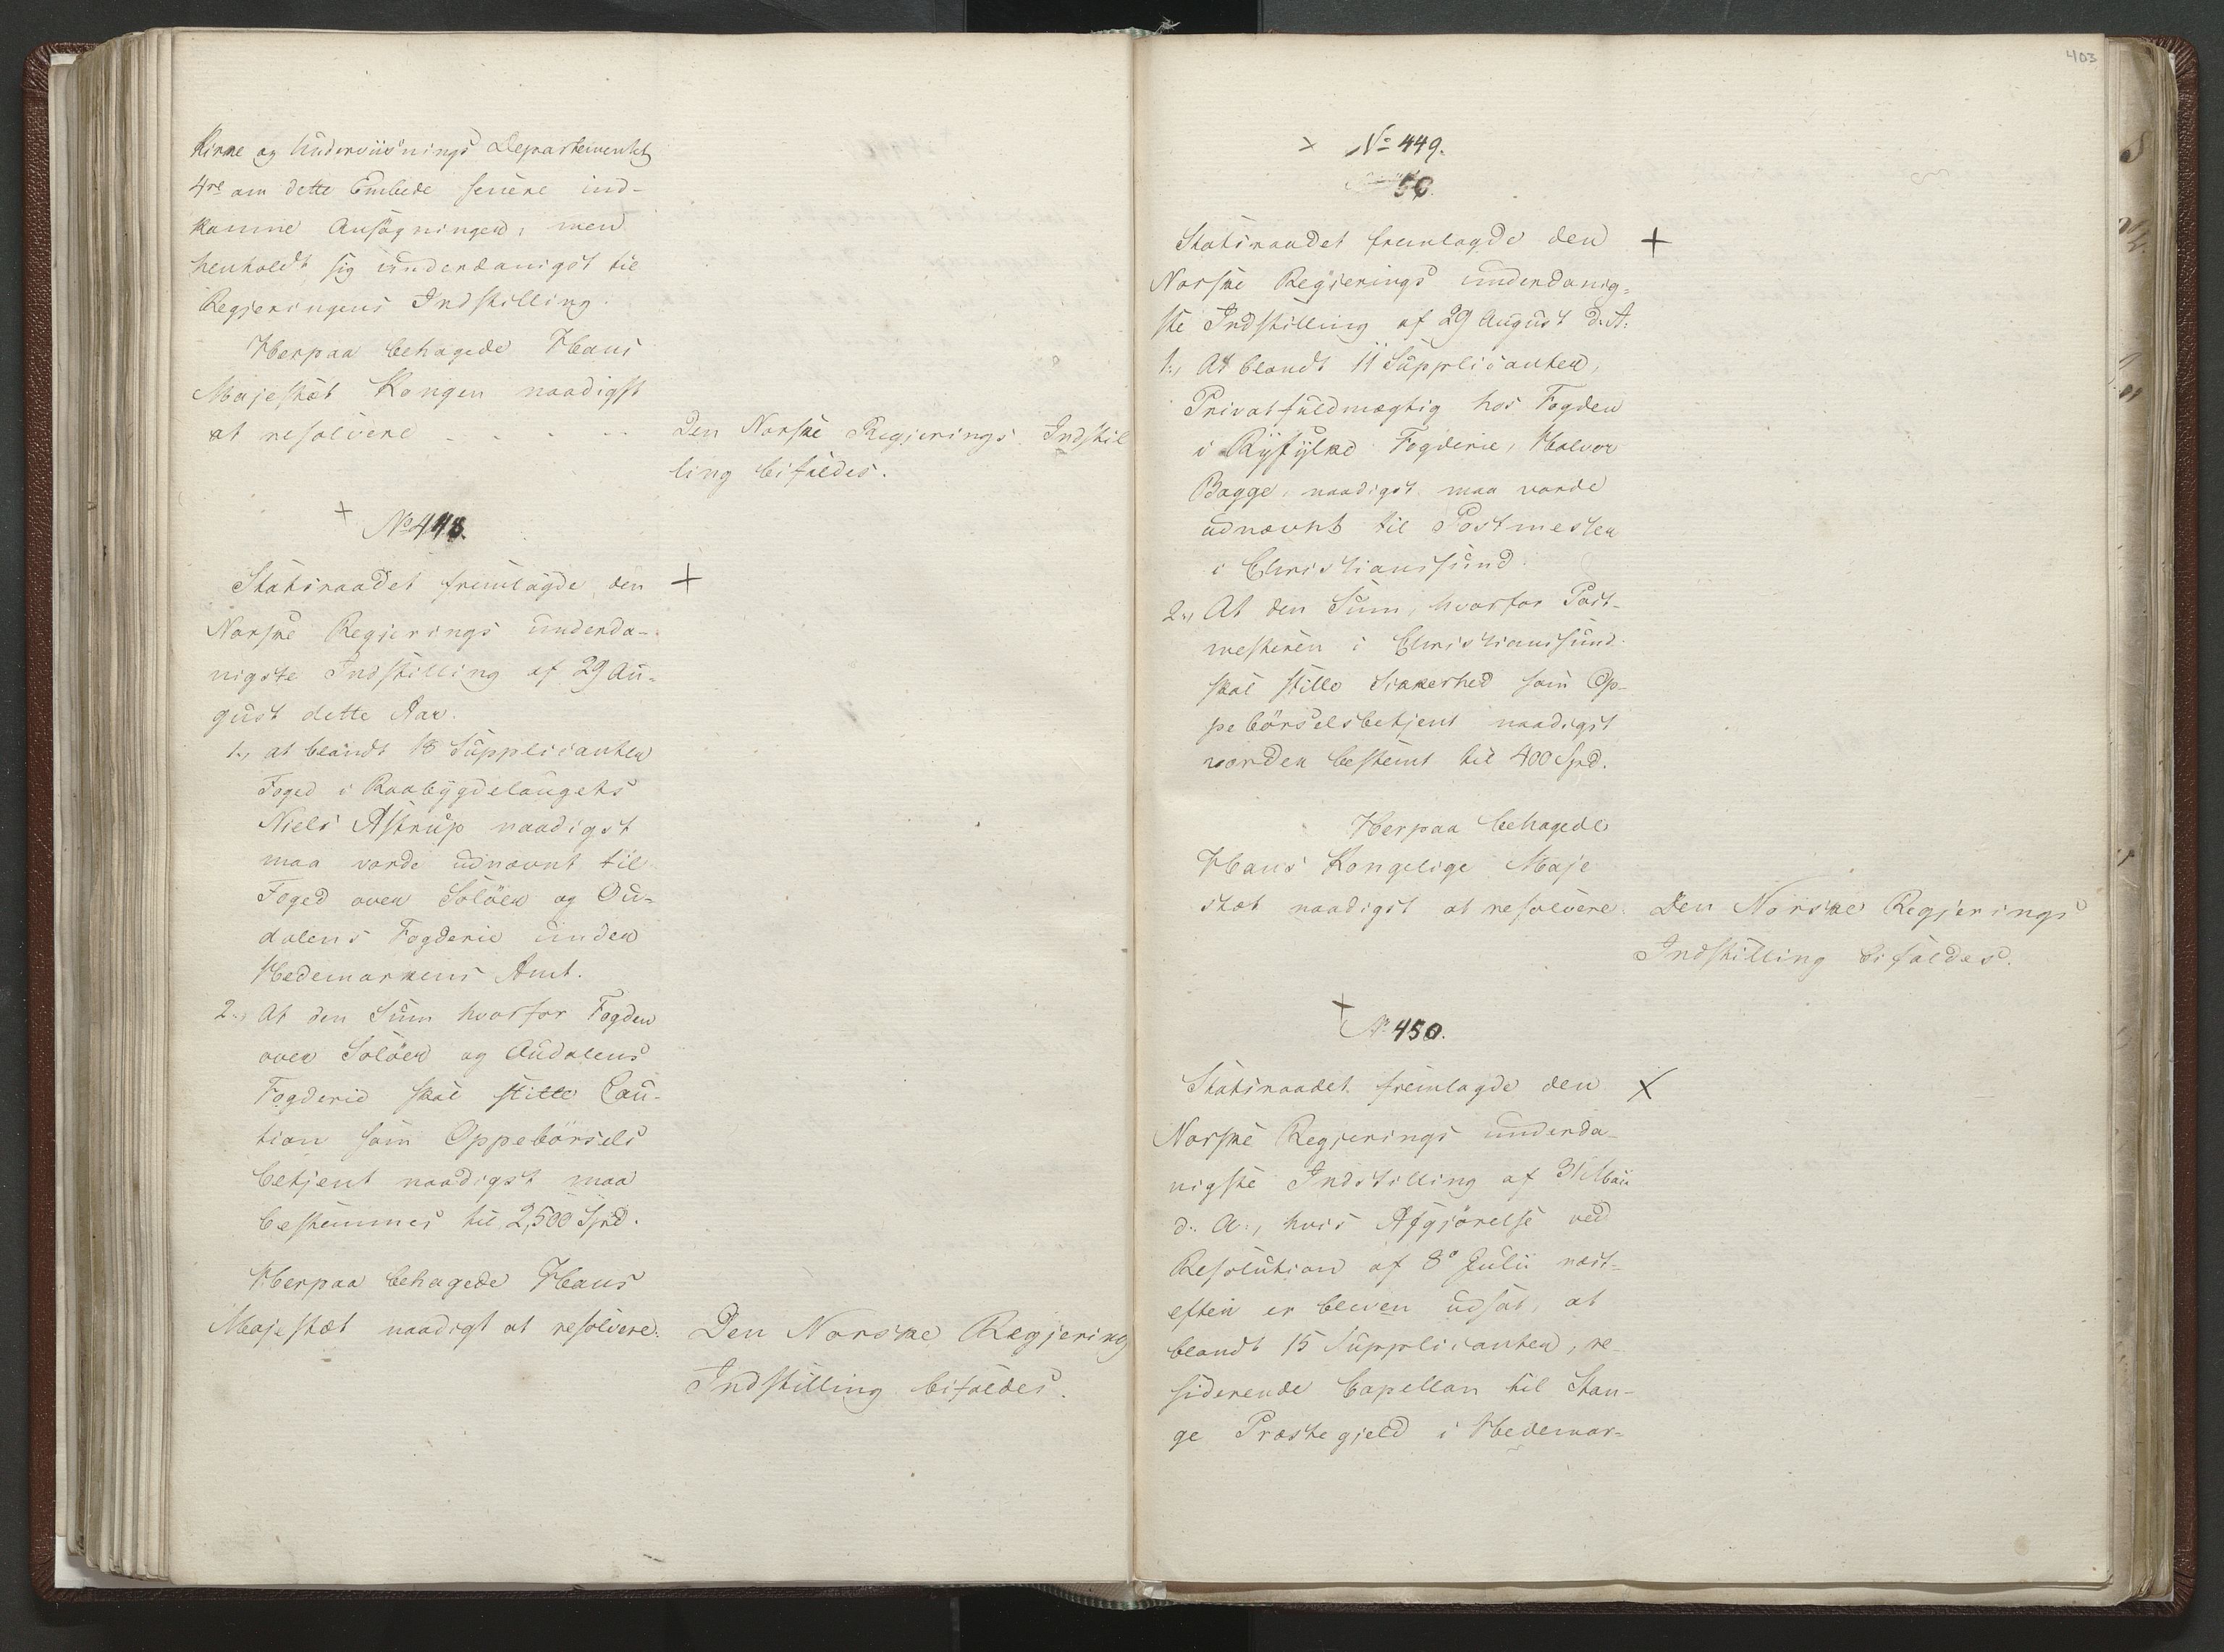 Kirke og Underviisnings Departementet
4re om dette Embede senere ind-
komne Ansögninger, men
henholdt sig underdanigst til
Regjeringens Indstilling.
Herpaa behagede Hans
Majestæt Kongen naadigst
at resolvere - - - -
Den Norske Regjerings Indstil
ling bifaldes.
+
No 448.
Statsraadet fremlagde den +
Norske Regjerings underda-
nigste Indstilling af 29 Au-
gust dette Aar.
1., at blandt 18 Supplicanter
Foged i Raabygdelaugets
Niels Astrup naadigst
maa vorde udnævnt til
Foged over Solöer og Ou-
dalens Fogderie under
Hedemarkens Amt.
2., At den Sum hvorfor Fogden
over Solöer og Oudalens
Fogderie skal stille Cau-
tion som Oppebörsels
betjent naadigst maa
bestemmes til 2,500 Spd.
Herpaa behagede Hans
Majestæt naadigt at resolvere:
Den Norske Regjering
Indstilling bifaldes.
403
+ No 449.
50.
Statsraadet fremlagde den +
Norske Regjerings underdanig-
ste Indstilling af 29 August d. A:
1., At blandt 11 Supplicanter,
Privatfuldmægtig hos Fogden
i Ryfylke Fogderie, Halvor
Bagge, naadigst maa vorde
udnævnt til Postmester
i Christianssund.
2., At den Sum, hvorfor Post-
mesteren i Christianssund
skal stille Sikkerhed som Op-
pebörselsbetjent naadigst
vorder bestemt til 400 Spd.
Herpaa behagede
Hans Kongelige Maje
stæt naadigst at resolvere
Den Norske Regjerings
Indstilling bifaldes.
+
No 450.
Statsraadet fremlagde den X
Norske Regjerings underda-
nigste Indstilling af 31 Maii
d. A., hvis Afgjörelse ved
Resolution af 8de Julii næst-
efter er bleven udsat, at
blandt 15 Supplicanter, re-
siderende Capellan til Stan-
ge Præstegjeld i Hedemar-